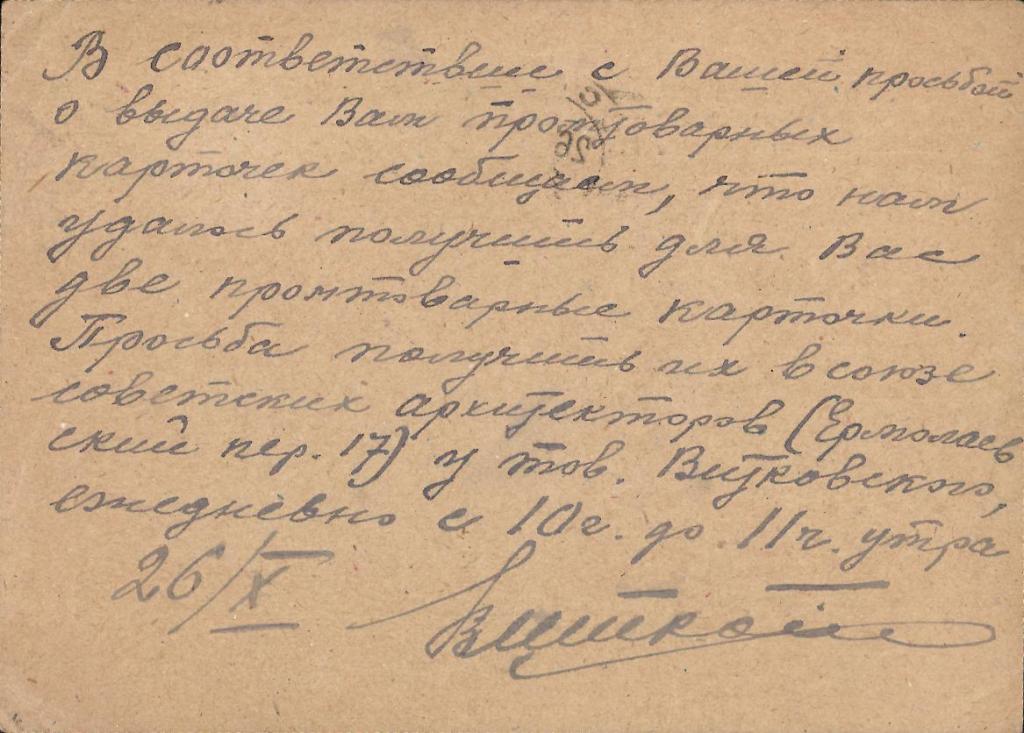 В соответствие с Вашей просьбой
о выдаче Вам промтоварных
карточек сообщаем, что нам
удалось получить для Вас
две промтоварные карточки.
Просьба получить их в союзе
советских архитекторов (Ермолаев
ский пер. 17) у тов. Витковского,
ежедневно с 10ч. до 11ч. утра
26/X